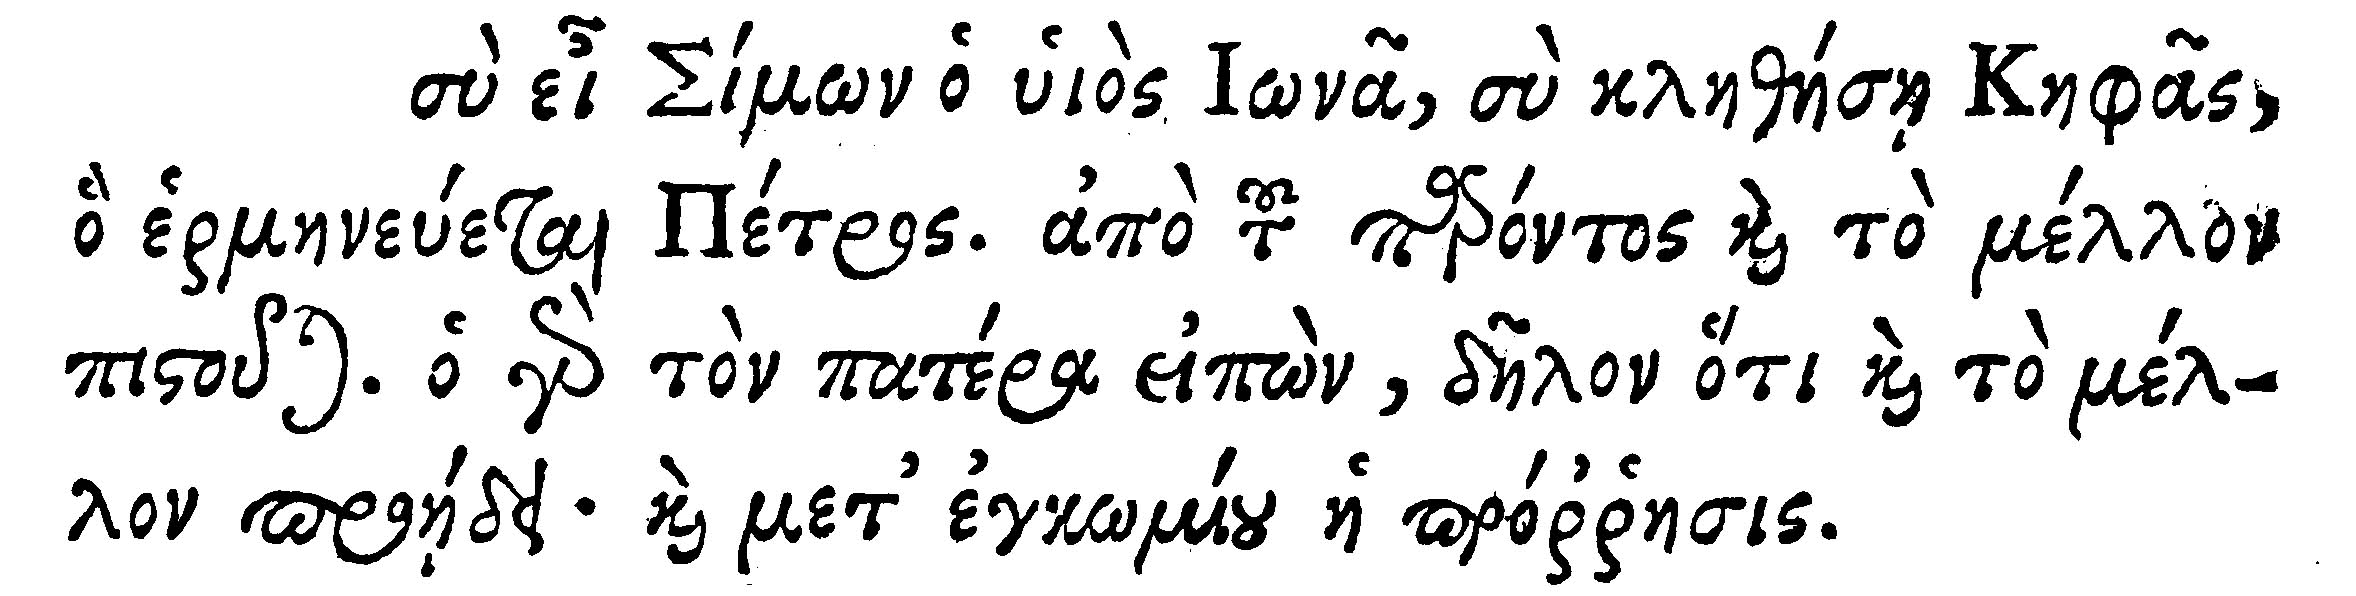 σὺ εἶ Σίμων ὁ ὑιὸς Ιωνᾶ, σὺ κληθήσῃ Κηφᾶς,
ὃ ἑρμηνεύεται Πέτρος. ἀπὸ τοῦ παρόντος καὶ τὸ μέλλον
πιστοῦται. ὁ γὰρ τὸν πατέρα εἰπὼν, δῆλον ὅτι καὶ τὸ μέλ-
λον προῄδει· καὶ μετ' ἐγκωμίου ἡ πρόῤῥησις.